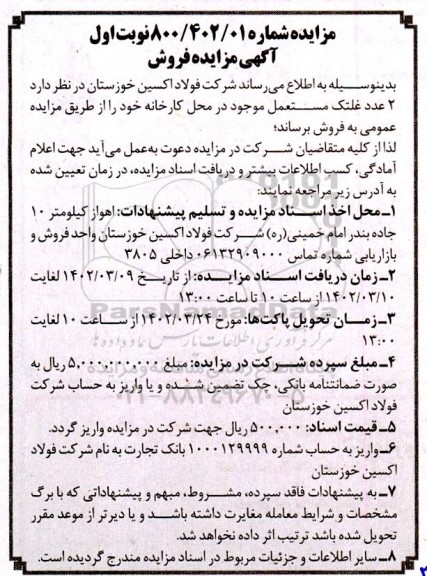 مزایده شماره ۸۰۰/۴۰۲/۰۱ نوبت اول
آگهی مزایده فروش
بدینوسیله به اطلاع می‌رساند شرکت فولاد اکسین خوزستان در نظر دارد
۲ عدد غلتک مستعمل موجود در محل کارخانه خود را از طریق مزایده
عمومی به فروش برساند؛
لذا از کلیه متقاضیان شرکت در مزایده دعوت به‌عمل می‌آید جهت اعلام
آمادگی، کسب اطلاعات بیشتر و دریافت اسناد مزایده، در زمان تعیین شده
به آدرس زیر مراجعه نمایند:
۱ـ محل اخذ اسناد مزایده و تسلیم پیشنهادات: اهواز کیلومتر ۱۰
جاده بندر امام خمینی(ره) شرکت فولاد اکسین خوزستان واحد فروش و
بازاریابی شماره تماس ۰۶۱۳۲۹۰۹۰۰۰ داخلی ۳۸۰۵
۲ـ زمان دریافت اسناد مزایده: از تاریخ ۱۴۰۲/۰۳/۰۹ لغایت
۱۴۰۲/۰۳/۱۰ از ساعت ۱۰ تا ساعت ۱۳:۰۰
۳ـ زمان تحویل پاکت‌ها: مورخ ۱۴۰۲/۰۳/۲۴ از ساعت ۱۰ لغایت
۱۳:۰۰
۴ـ مبلغ سپرده شرکت در مزایده: مبلغ ۵,۰۰۰,۰۰۰,۰۰۰ ریال به
صورت ضمانتنامه بانکی، چک تضمین شده و یا واریز به حساب شرکت
فولاد اکسین خوزستان
۵ـ قیمت اسناد: ۵۰۰,۰۰۰ ریال جهت شرکت در مزایده واریز گردد.
۶ـ واریز به حساب شماره ۱۰۰۰۱۲۹۹۹۹ بانک تجارت به نام شرکت فولاد
اکسین خوزستان
۷ـ به پیشنهادات فاقد سپرده، مشروط، مبهم و پیشنهاداتی که با برگ
مشخصات و شرایط معامله مغایرت داشته باشند و یا دیرتر از موعد مقرر
تحویل شده باشد ترتیب اثر داده نخواهد شد.
۸ـ سایر اطلاعات و جزئیات مربوط در اسناد مزایده مندرج گردیده است.
ParsNamadData
۰۲۱-۸۸۳۴۹۶۷۰-۵